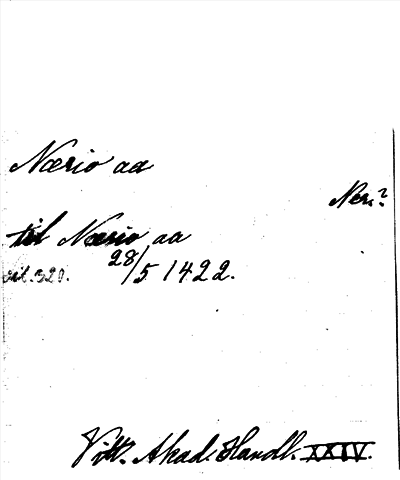 Nærio aa
Ner.?
til Nærio aa
sid. 320. 28/5 1422.
Vitt. Akad. Handl. XXIV.